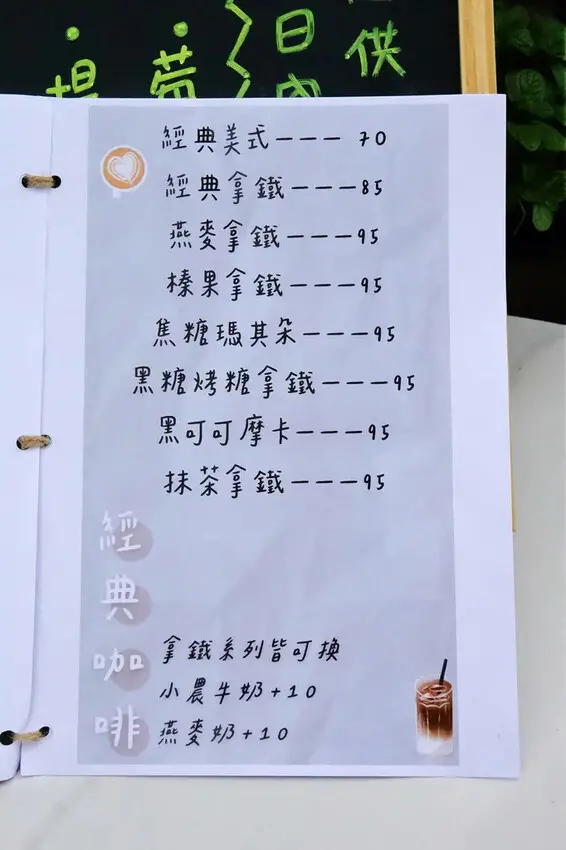 日
供
經典美式———70
經典拿鐵———85
燕麥拿鐵———95
榛果拿鐵———95
焦糖瑪其朵———95
黑糖烤糖拿鐵———95
黑可可摩卡———95
抹茶拿鐵———95
經典咖啡
拿鐵系列皆可換
小農牛奶+10
燕麥奶+10